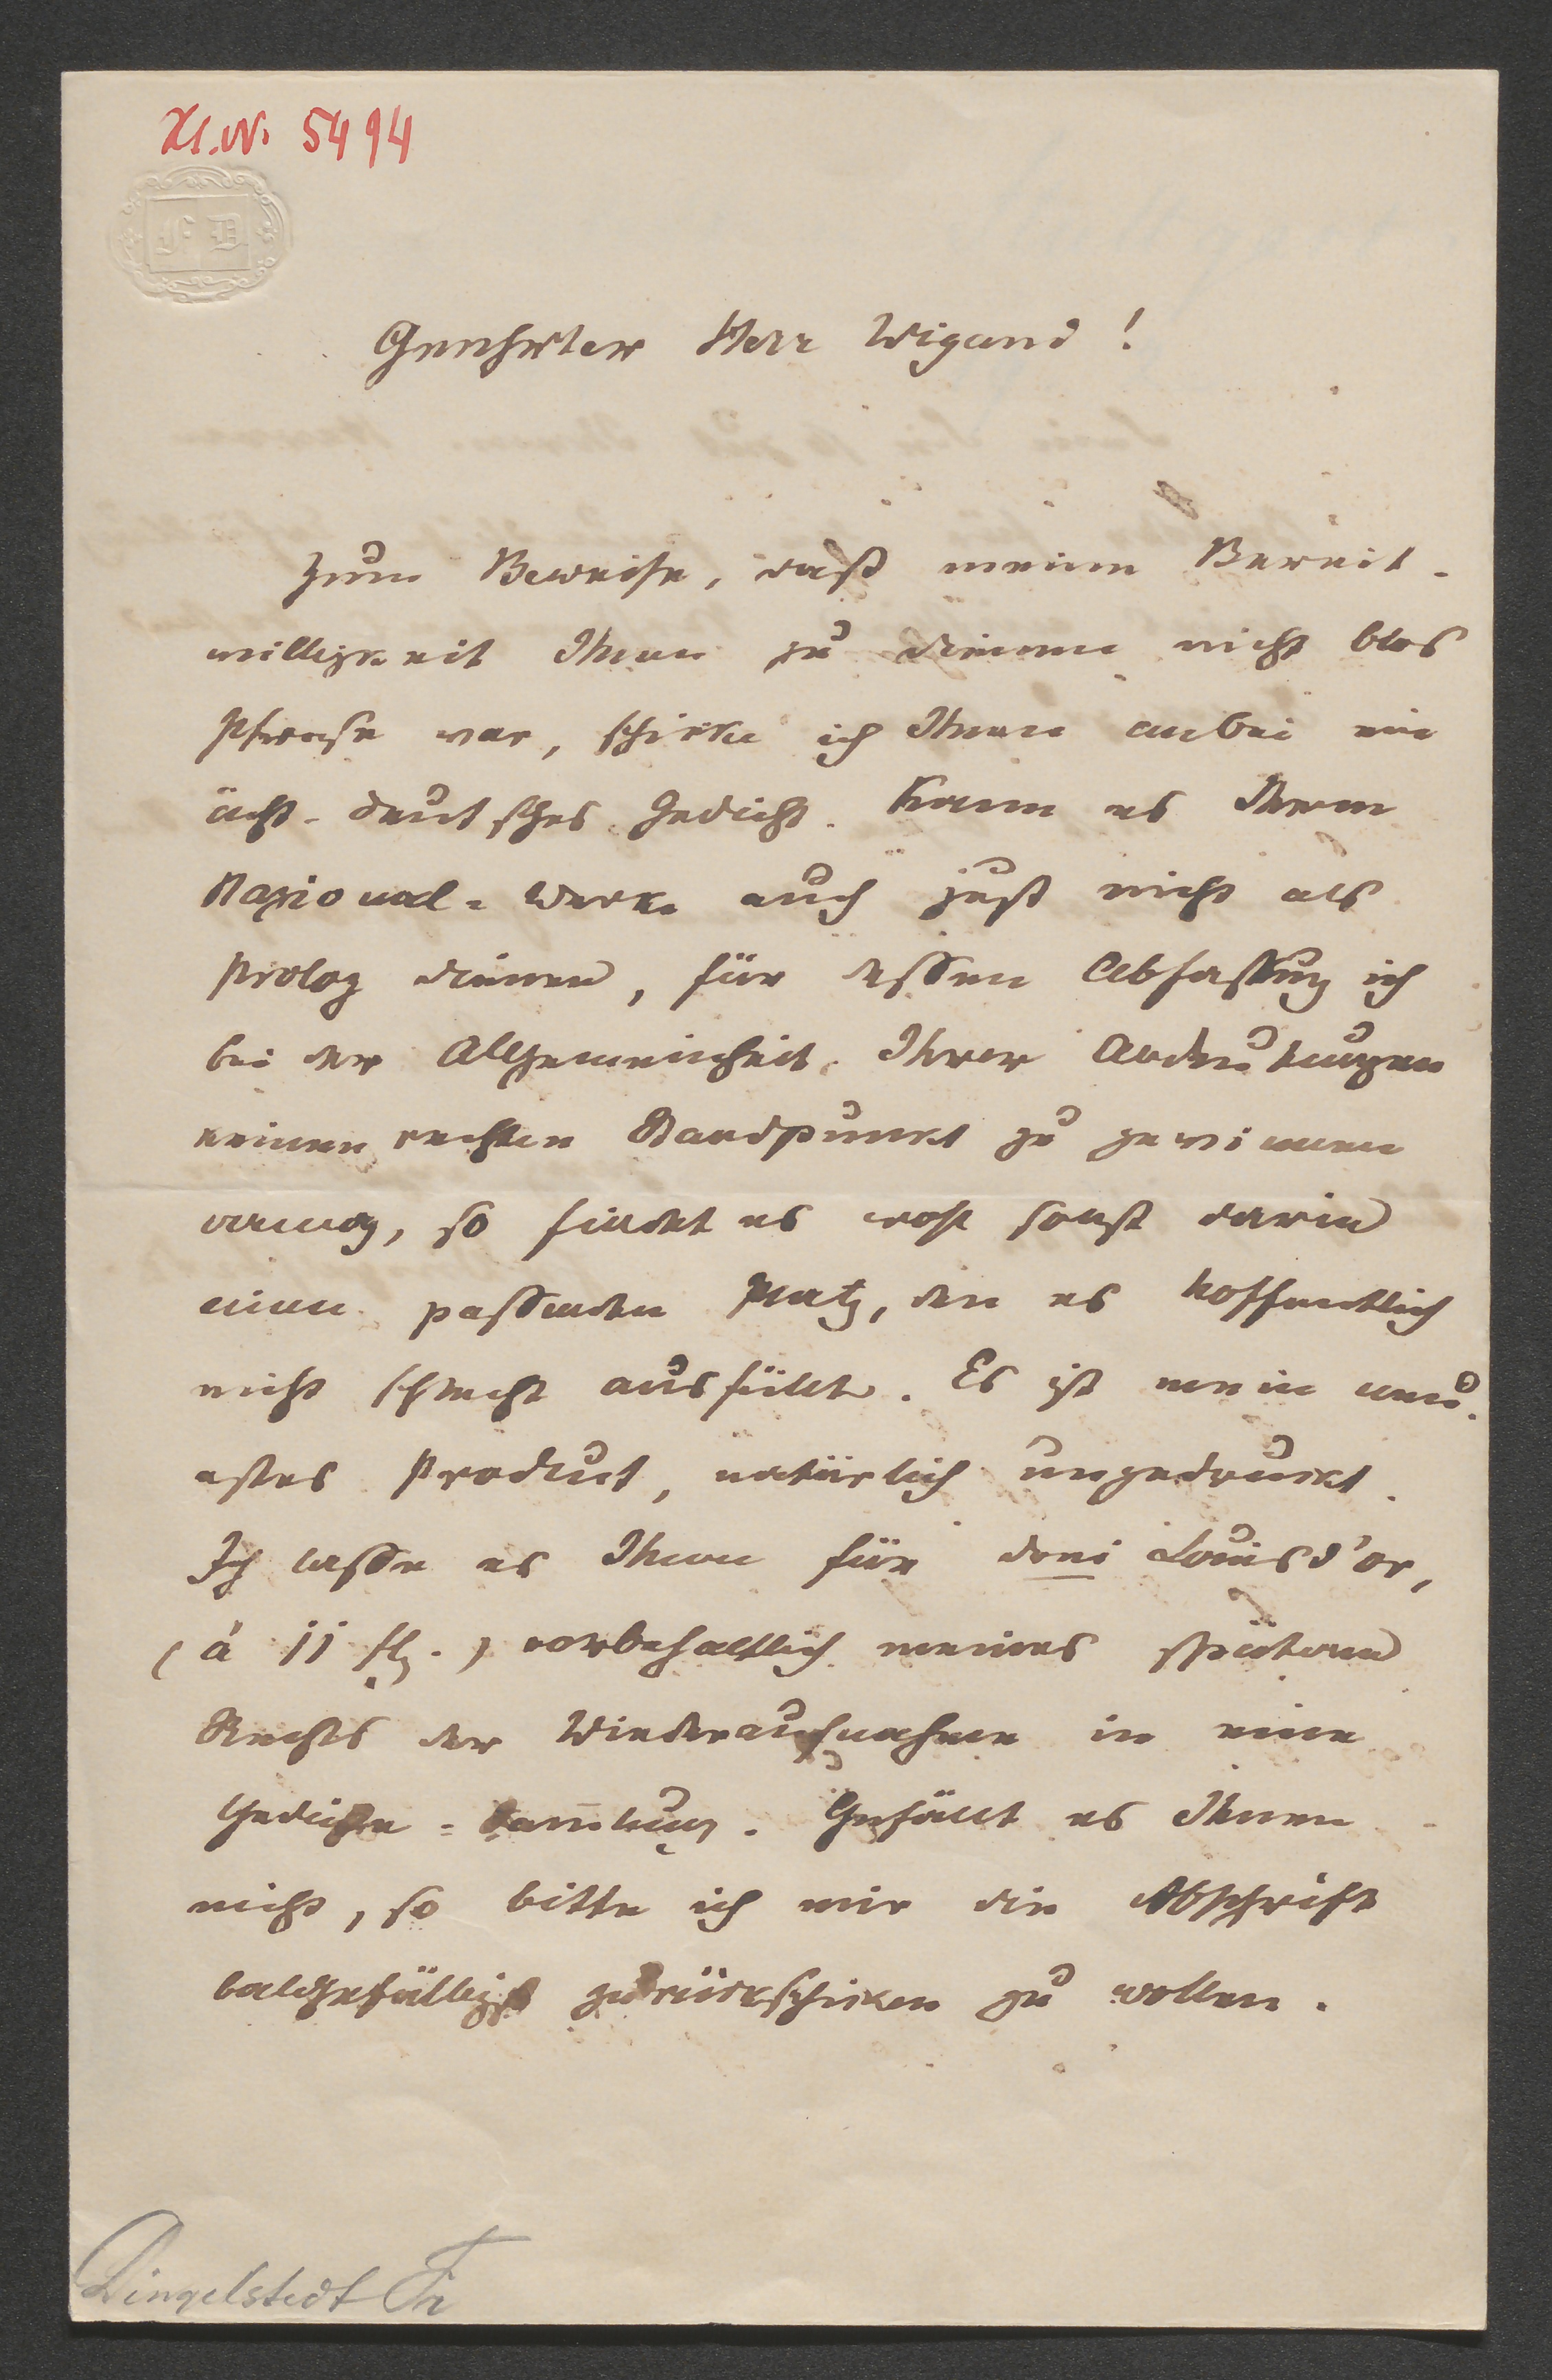 H.N. 5494
F D
Geehrter Herr Wigand!
Zum Beweise, daß meine Bereit-
willigkeit Ihnen zu dienen nicht blos
Phrase war, schicke ich Ihnen anbei ein
ächt-deutsches Gedicht. Kann es Ihrem
Nazional-Werke auch just nicht als
Prolog dienen, für dessen Abfassung ich
bei der Allgemeinheit Ihrer Andeutungen
keinen rechten Standpunkt zu gewinnen
vermag, so findet es wohl sonst darin
einen passenden Platz, den es hoffentlich
nicht schlecht ausfüllt. Es ist mein neu-
estes Product, natürlich ungedruckt.
Ich lasse es Ihnen für drei Louisd'or,
(à 11 fl.) vorbehaltlich meines spätern
Rechts der Wiederaufnahme in eine
Gedichte-Sam̅lung. Gefällt es Ihnen
nicht, so bitte ich mir die Abschrift
baldgefälligst zurückschicken zu wollen.
Dingelstedt Fr